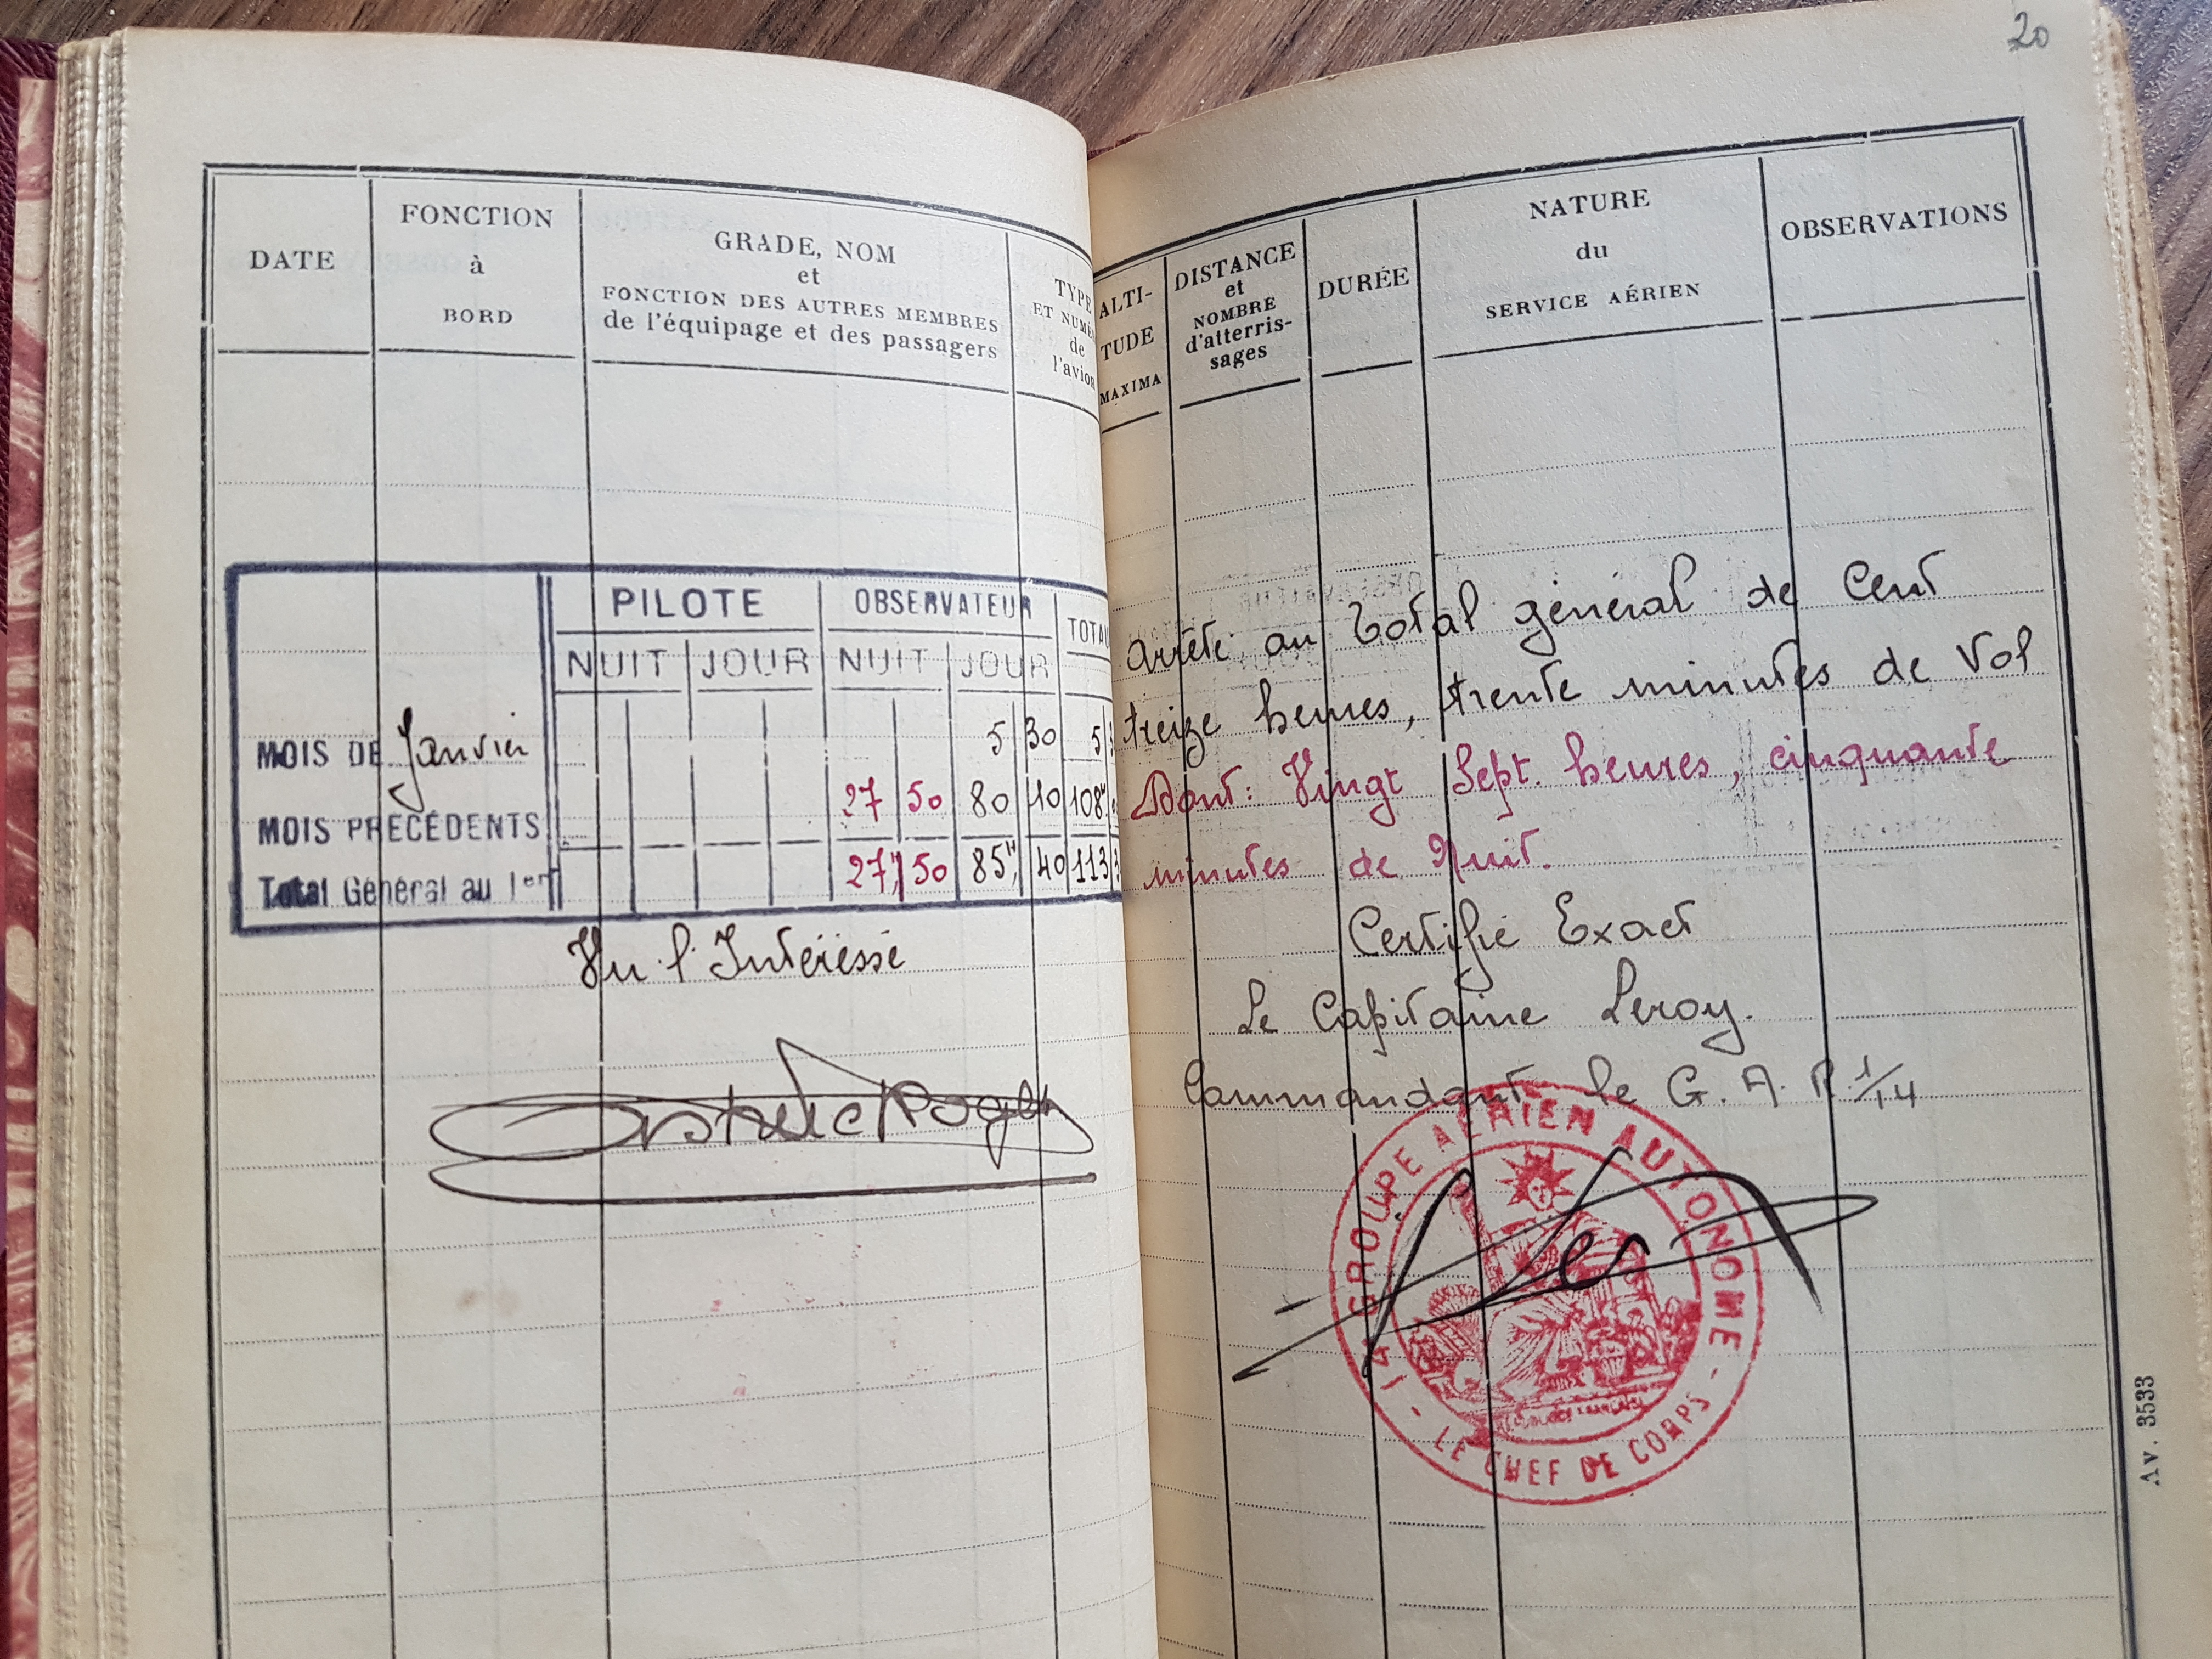 20
DATE
FONCTION
à
BORD
GRADE, NOM
et
FONCTION DES AUTRES MEMBRES
de l'équipage et des passagers
TYPE
ET NUMÉ
de
l'avion
ALTI-
TUDE
MAXIMA
DISTANCE
et
NOMBRE
d'atterris-
sages
DURÉE
NATURE
du
SERVICE AÉRIEN
OBSERVATIONS
PILOTE OBSERVATEUR TOTAL
NUIT JOUR NUIT JOUR
MOIS DE Janvier 5 30 5
MOIS PRÉCÉDENTS 27 50 80 10 108
Total Général au 1er 27 50 85 40 113
Vu l'Intéressé
Arrêté au total général de Cent
treize heures, trente minutes de Vol
Dont: Vingt Sept. heures, cinquante
minutes de Nuit.
Certifié Exact
Le Capitaine Leroy.
Commandant le G. A. R. 1/14
14e GROUPE AÉRIEN AUTONOME
- LE CHEF DE CORPS -
Av. 3533